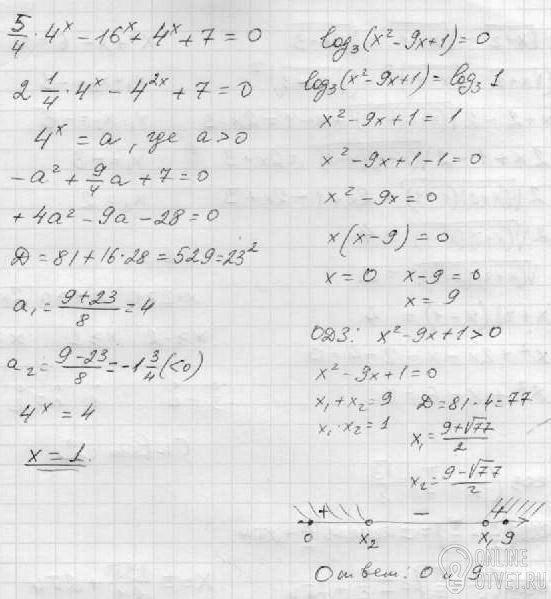 5/4 · 4^x − 16^x + 4^x + 7 = 0
2 1/4 · 4^x − 4^{2x} + 7 = 0
4^x = a, где a > 0
−a² + 9/4 a + 7 = 0
+ 4a² − 9a − 28 = 0
D = 81 + 16·28 = 529 = 23²
a₁ = (9+23)/8 = 4
a₂ = (9−23)/8 = −1 3/4 (<0)
4^x = 4
x = 1.
log₃(x² − 9x + 1) = 0
log₃(x² − 9x + 1) = log₃ 1
x² − 9x + 1 = 1
x² − 9x + 1 − 1 = 0
x² − 9x = 0
x(x − 9) = 0
x = 0 x − 9 = 0
x = 9
ОДЗ: x² − 9x + 1 > 0
x² − 9x + 1 = 0
x₁ + x₂ = 9 D = 81 − 4 = 77
x₁ · x₂ = 1 x₁ = (9+√77)/2
x₂ = (9−√77)/2
+ − +
0 x₂ x₁ 9
Ответ: 0 и 9
ONLINE
OTVET.RU